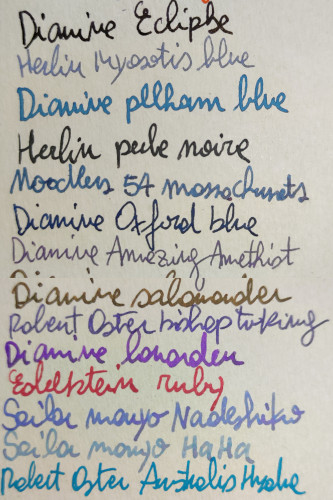 Diamine Eclipse
Herlin Myosotis blue
Diamine pelham blue
Herlin perle noire
Noodlers 54 massachusets
Diamine Oxford blue
Diamine Amazing Amethist
Diamine salamander
Robert Oster bishop to king
Diamine lavander
Edelstein ruby
Sailor manyo Nadeshiko
Sailor manyo HaHa
Robert Oster Australis Hydra